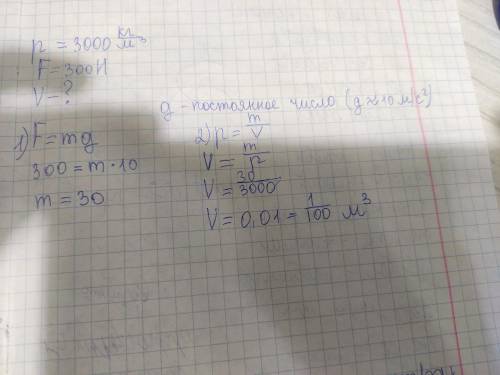 p = 3000 кг/м³
F = 300 Н
V - ?
g - постоянное число (g ≈ 10 м/с²)
1) F = mg
300 = m · 10
m = 30
2) p = m/V
V = m/p
V = 30/3000
V = 0,01 = 1/100 м³